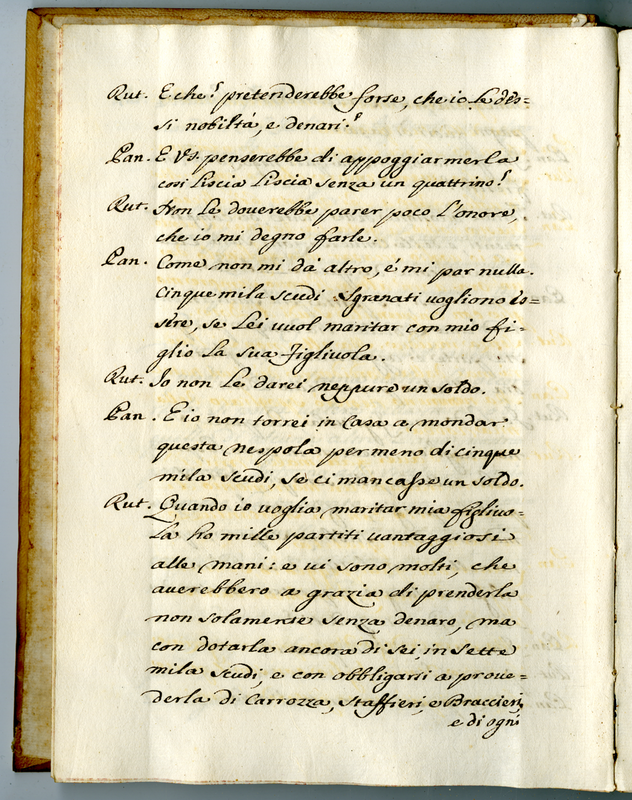 Rut. E che? pretenderebbe forse, che io Le des=
si nobiltà, e denari?
Pan. E VS. penserebbe di appoggiarmerla
così Liscia Liscia senza un quattrino?
Rut. Non Le doverebbe parer poco L'onore,
che io mi degno farle.
Pan. Come non mi dà altro, é mi par nulla.
Cinque mila scudi sgranati vogliono es=
sere, se Lei vuol maritar con mio fi=
glio La sua figlivola.
Rut. Io non Le darei neppure un soldo.
Pan. E io non torrei in Casa a mondar
questa nespola per meno di cinque
mila scudi, se ci mancasse un soldo.
Rut. Quando io voglia maritar mia figlivo=
La ho mille partiti vantaggiosi
alle mani: e vi sono molti, che
averebbero a grazia di prenderla
non solamente senza denaro, ma
con dotarla ancora di sei, in sette
mila scudi, e con obbligarsi a prove=
derla di Carrozza, Staffieri, e Braccieri,
e di ogni